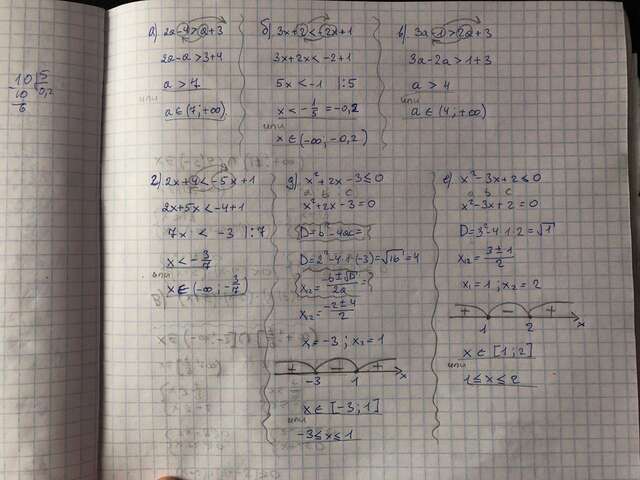 10 5
10 0,2
6
а) 2a-4>a+3
2a-a>3+4
a>7
или
a∈(7;+∞)
б) 3x+2<-2x+1
3x+2x<-2+1
5x<-1 |:5
x<-1/5=-0,2
или
x∈(-∞;-0,2)
в) 3a-1>2a+3
3a-2a>1+3
a>4
или
a∈(4;+∞)
г) 2x+4<-5x+1
2x+5x<-4+1
7x<-3 |:7
x<-3/7
или
x∈(-∞;-3/7)
д) x²+2x-3≤0
a b c
x²+2x-3=0
D=b²-4ac=
D=2²-4·1·(-3)=√16=4
x₁,₂=(-b±√D)/2a=
x₁,₂=(-2±4)/2
x₁=-3; x₂=1
+ - +
-3 1 x
x∈[-3;1]
или
-3≤x≤1
е) x²-3x+2≤0
a b c
x²-3x+2=0
D=3²-4·1·2=√1
x₁,₂=(3±1)/2
x₁=1; x₂=2
+ - +
1 2 x
x∈[1;2]
или
1≤x≤2